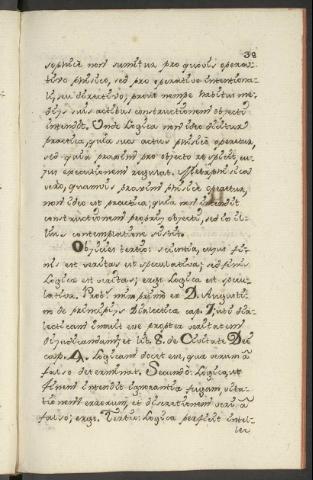 38
sophicè non sumitur pro quovis opera-
tivo physico, sed pro operativo intentiona-
li, seu directivo; prout nempe habitus me-
dijs suis actibus constructionem objecti
intendit. Unde Logica non ideo dicitur
practica, quia suos actus physicè operatur,
sed quia praxim pro objecto respicit, cu-
jus executionem regulat. Metaphysica
vero, quamvis praxim physicè operetur,
non ideo est practica; quia non intendit
constructionem proprij objecti, sed in il-
lius contemplatione sistit.
Objicies tertio: scientia, cujus fi-
nis est veritas est speculativa; sed finis
Logicæ est veritas; ergo Logica est specu-
lativa. Prob. min. primo ex D. Augusti-
no de principijs Dialecticæ cap. 1, ubi dia-
lecticam inquit esse propter veritatem
dijudicandam; et lib. 8. de Civitate Dei
cap. 4. Logicam docet esse, qua verum a
falso determinat. Secundo: Logica, ut
finem intendit ignorantiæ fugam, vita-
tionem errorum, et discretionem veri a
falso; ergo. Tertio: Logica perficit intel-
lec